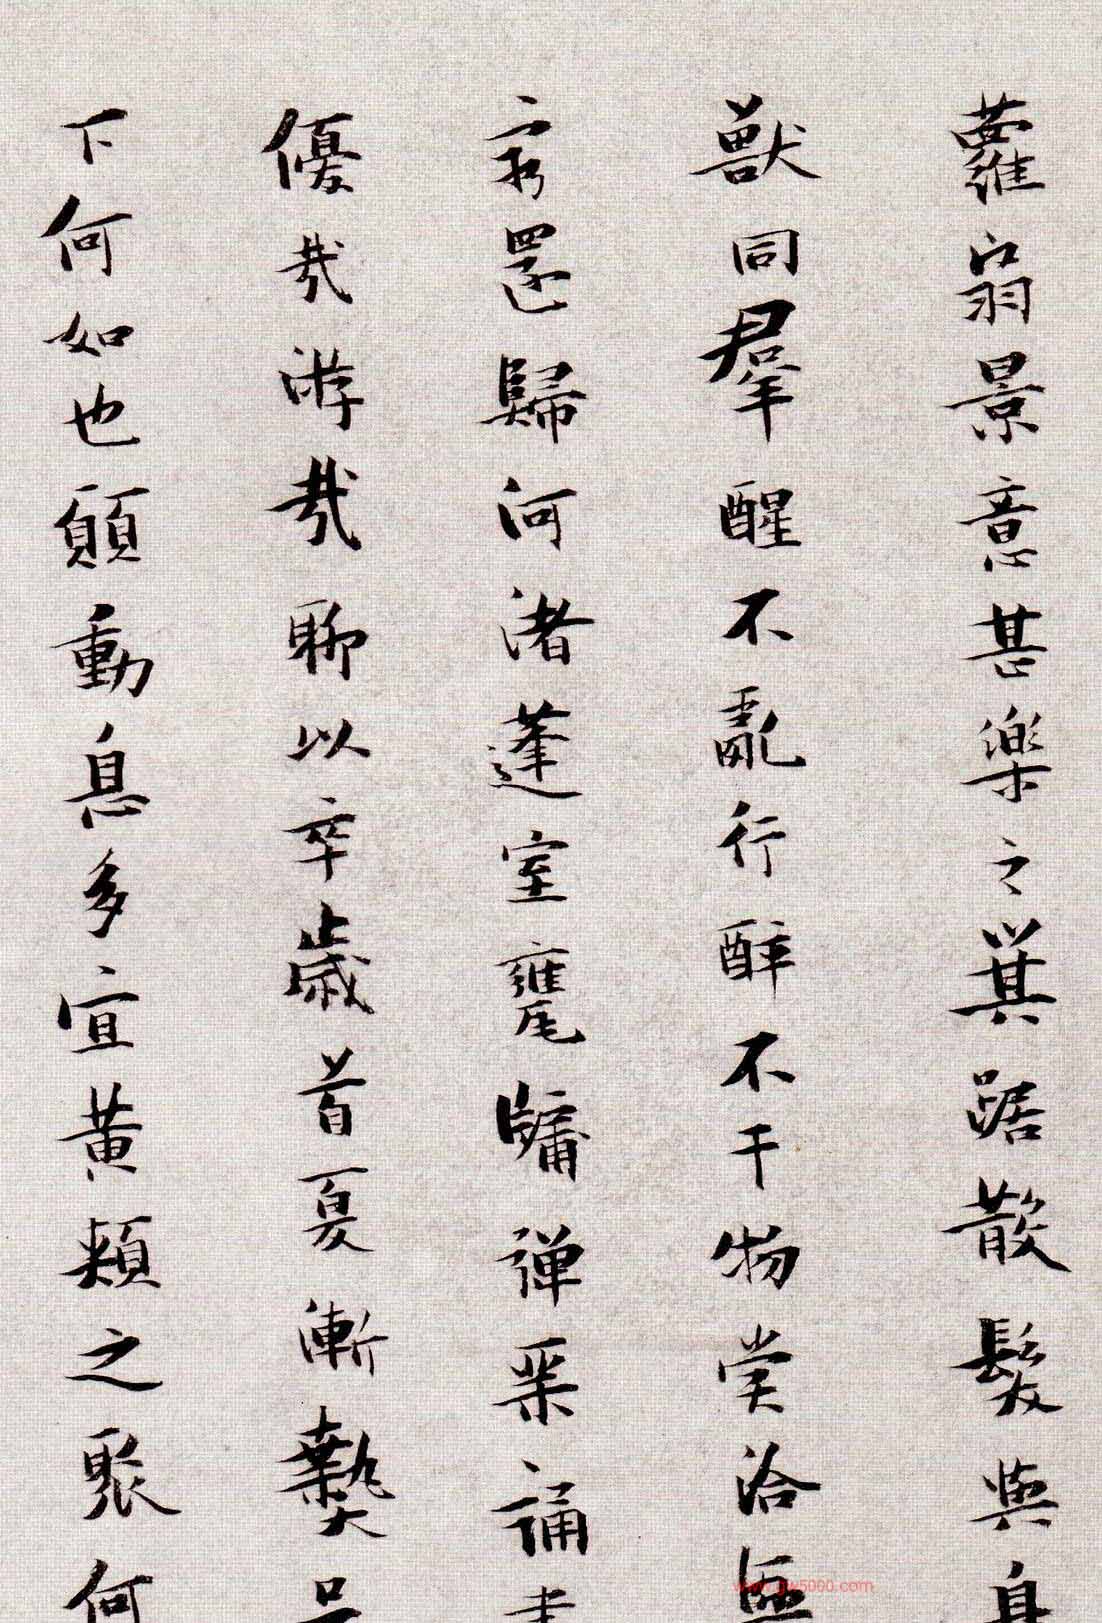 蘿扇景意甚樂之箕踞散髮與鳥
獸同羣醒不亂行醉不干物賞洽
窮還歸河渚蓬室甕牖彈棊誦書
優哉游哉聊以卒歲首夏漸熱
下何如也願動息多宜黃頰之聚何
www.yw5000.com